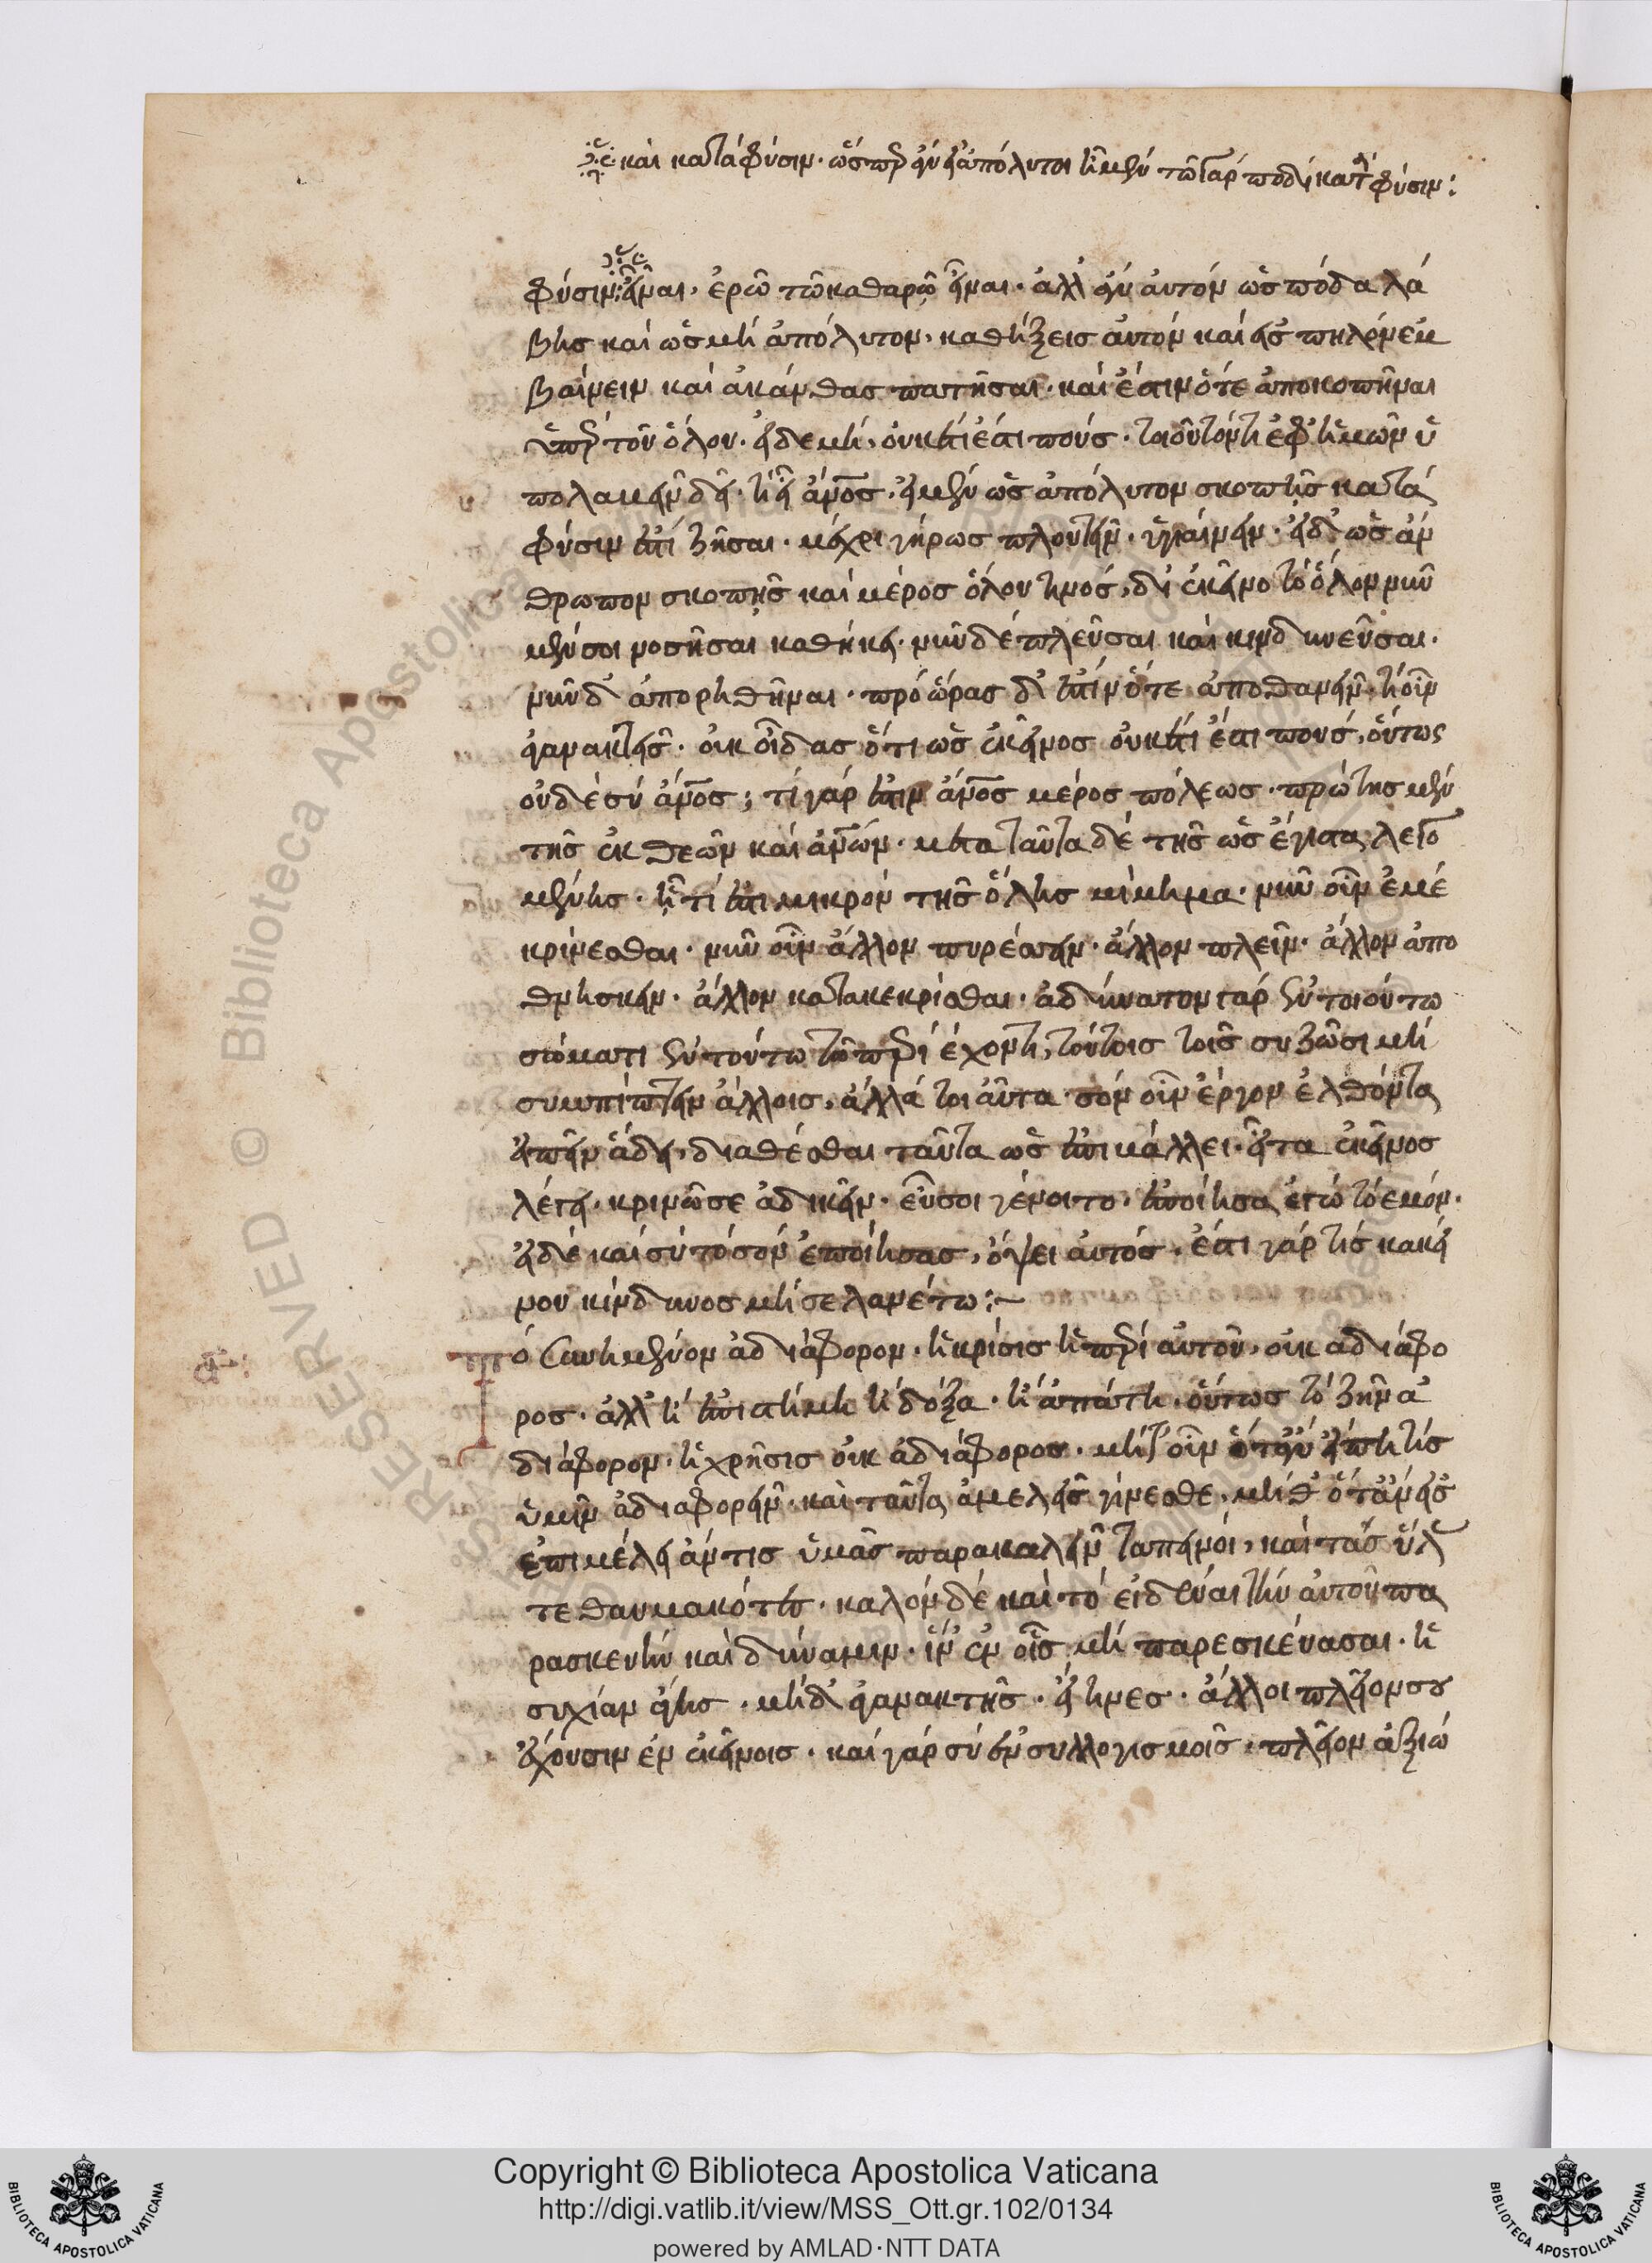 καὶ κατὰ φύσιν. ὥσπερ ἂν εἰ ἀπόλυτοι ἦμεν τῶ γὰρ ποδὶ κατὰ φύσιν:
φύσιν εἶναι. ἐρῶ τῶ καθαρῶ εἶναι. ἀλλ' ἂν αὐτὸν ὡς πόδα λά
βης καὶ ὡς μὴ ἀπόλυτον. καθήξεις αὐτὸν καὶ εἰς πηλὸν ἐμ
βαίνειν καὶ ἀκάνθας πατῆσαι. καὶ ἔστιν ὅτε ἀποκοπῆναι
ὑπὲρ τοῦ ὅλου. εἰ δὲ μή, οὐκέτι ἔσται πούς. τοιοῦτόν τι ἐφ' ἡμῶν ὑ
πολαμεῖν δεῖ. τί εἶ ἄνος. εἰ μὲν ὡς ἀπόλυτον σκοπῆς κατὰ
φύσιν ἐστὶ ζῆσαι. μέχρι γήρως πλουτεῖν. ὑγιαίνειν. εἰ δ' ὡς ἄν
θρωπον σκοπῆς καὶ μέρος ὅλου τινός, δι' ἐκεῖνο τὸ ὅλον νῦν
μέν σοι νοσῆσαι καθήκει. νῦν δὲ πλεῦσαι καὶ κινδυνεῦσαι.
νῦν δ' ἀπορηθῆναι. πρὸ ὥρας δ' ἐστὶν ὅτε ἀποθανεῖν. τί οὖν
ἀγανακτεῖς. οὐκ οἶδας ὅτι ὡς ἐκεῖνος οὐκέτι ἔσται πούς, οὕτως
οὐδὲ σὺ ἄνος; τί γάρ ἐστιν ἄνος μέρος πόλεως. πρώτης μὲν
τῆς ἐκ θεῶν καὶ ἀνων. μετὰ ταῦτα δὲ τῆς ὡς ἔγγιστα λεγο
μένης. ἥ τί ἐστι μικρὸν τῆς ὅλης μίμημα. νῦν οὖν ἐμὲ
κρίνεσθαι. νῦν οὖν ἄλλον πυρέσσειν. ἄλλον πλεῖν. ἄλλον ἀπο
θνήσκειν. ἄλλον κατακεκρίσθαι. ἀδύνατον γὰρ ἐν τοιούτω
σώματι ἐν τούτω τῶ περιέχοντι, τούτοις τοῖς συζῶσι μὴ
συμπίπτειν ἄλλοις, ἀλλὰ τοιαῦτα. σὸν οὖν ἔργον ἐλθόντα
εἰπεῖν ἃ δεῖ, διαθέσθαι ταῦτα ὡς ἐπιβάλλει. εἶτα ἐκεῖνος
λέγει. κρινῶ σε ἀδικεῖν. εὖ σοι γένοιτο. ἐποίησα ἐγὼ τὸ ἐμόν.
εἰ δὲ καὶ σὺ τὸ σὸν ἐποίησας, ὄψει αὐτός. ἔστι γάρ τις κακεί
νου κίνδυνος μή σε λανέτω:~
Τὸ συνημμένον ἀδιάφορον. ἡ κρίσις ἡ περὶ αὐτοῦ, οὐκ ἀδιάφο
ρος. ἀλλ' ἢ ἐπιστήμη ἢ δόξα. ἢ ἀπάτη. οὕτως τὸ ζῆν ἀ
διάφορον. ἡ χρῆσις οὐκ ἀδιάφορος. μήτ' οὖν ὅταν εἴπη τις
ὑμῖν ἀδιαφορεῖν. καὶ ταῦτα ἀμελεῖς γίνεσθε. μήθ' ὅταν εἰς
ἐπιμέλειάν τις ὑμᾶς παρακαλεῖν ταπεινοί, καὶ τὰς ὕλας
τεθαυμακότες. καλὸν δὲ καὶ τὸ εἰδέναι τὴν αὐτοῦ πα
ρασκευὴν καὶ δύναμιν. ἵν' ἐν οἷς μὴ παρεσκεύασαι. ἡ
συχίαν ἄγης. μὴδ' ἀγανακτῆς. εἴ τινες. ἄλλοι πλεῖόν σου
ἔχουσιν ἐν ἐκείνοις. καὶ γὰρ σὺ ἐν συλλογισμοῖς. πλεῖον ἀξιώ